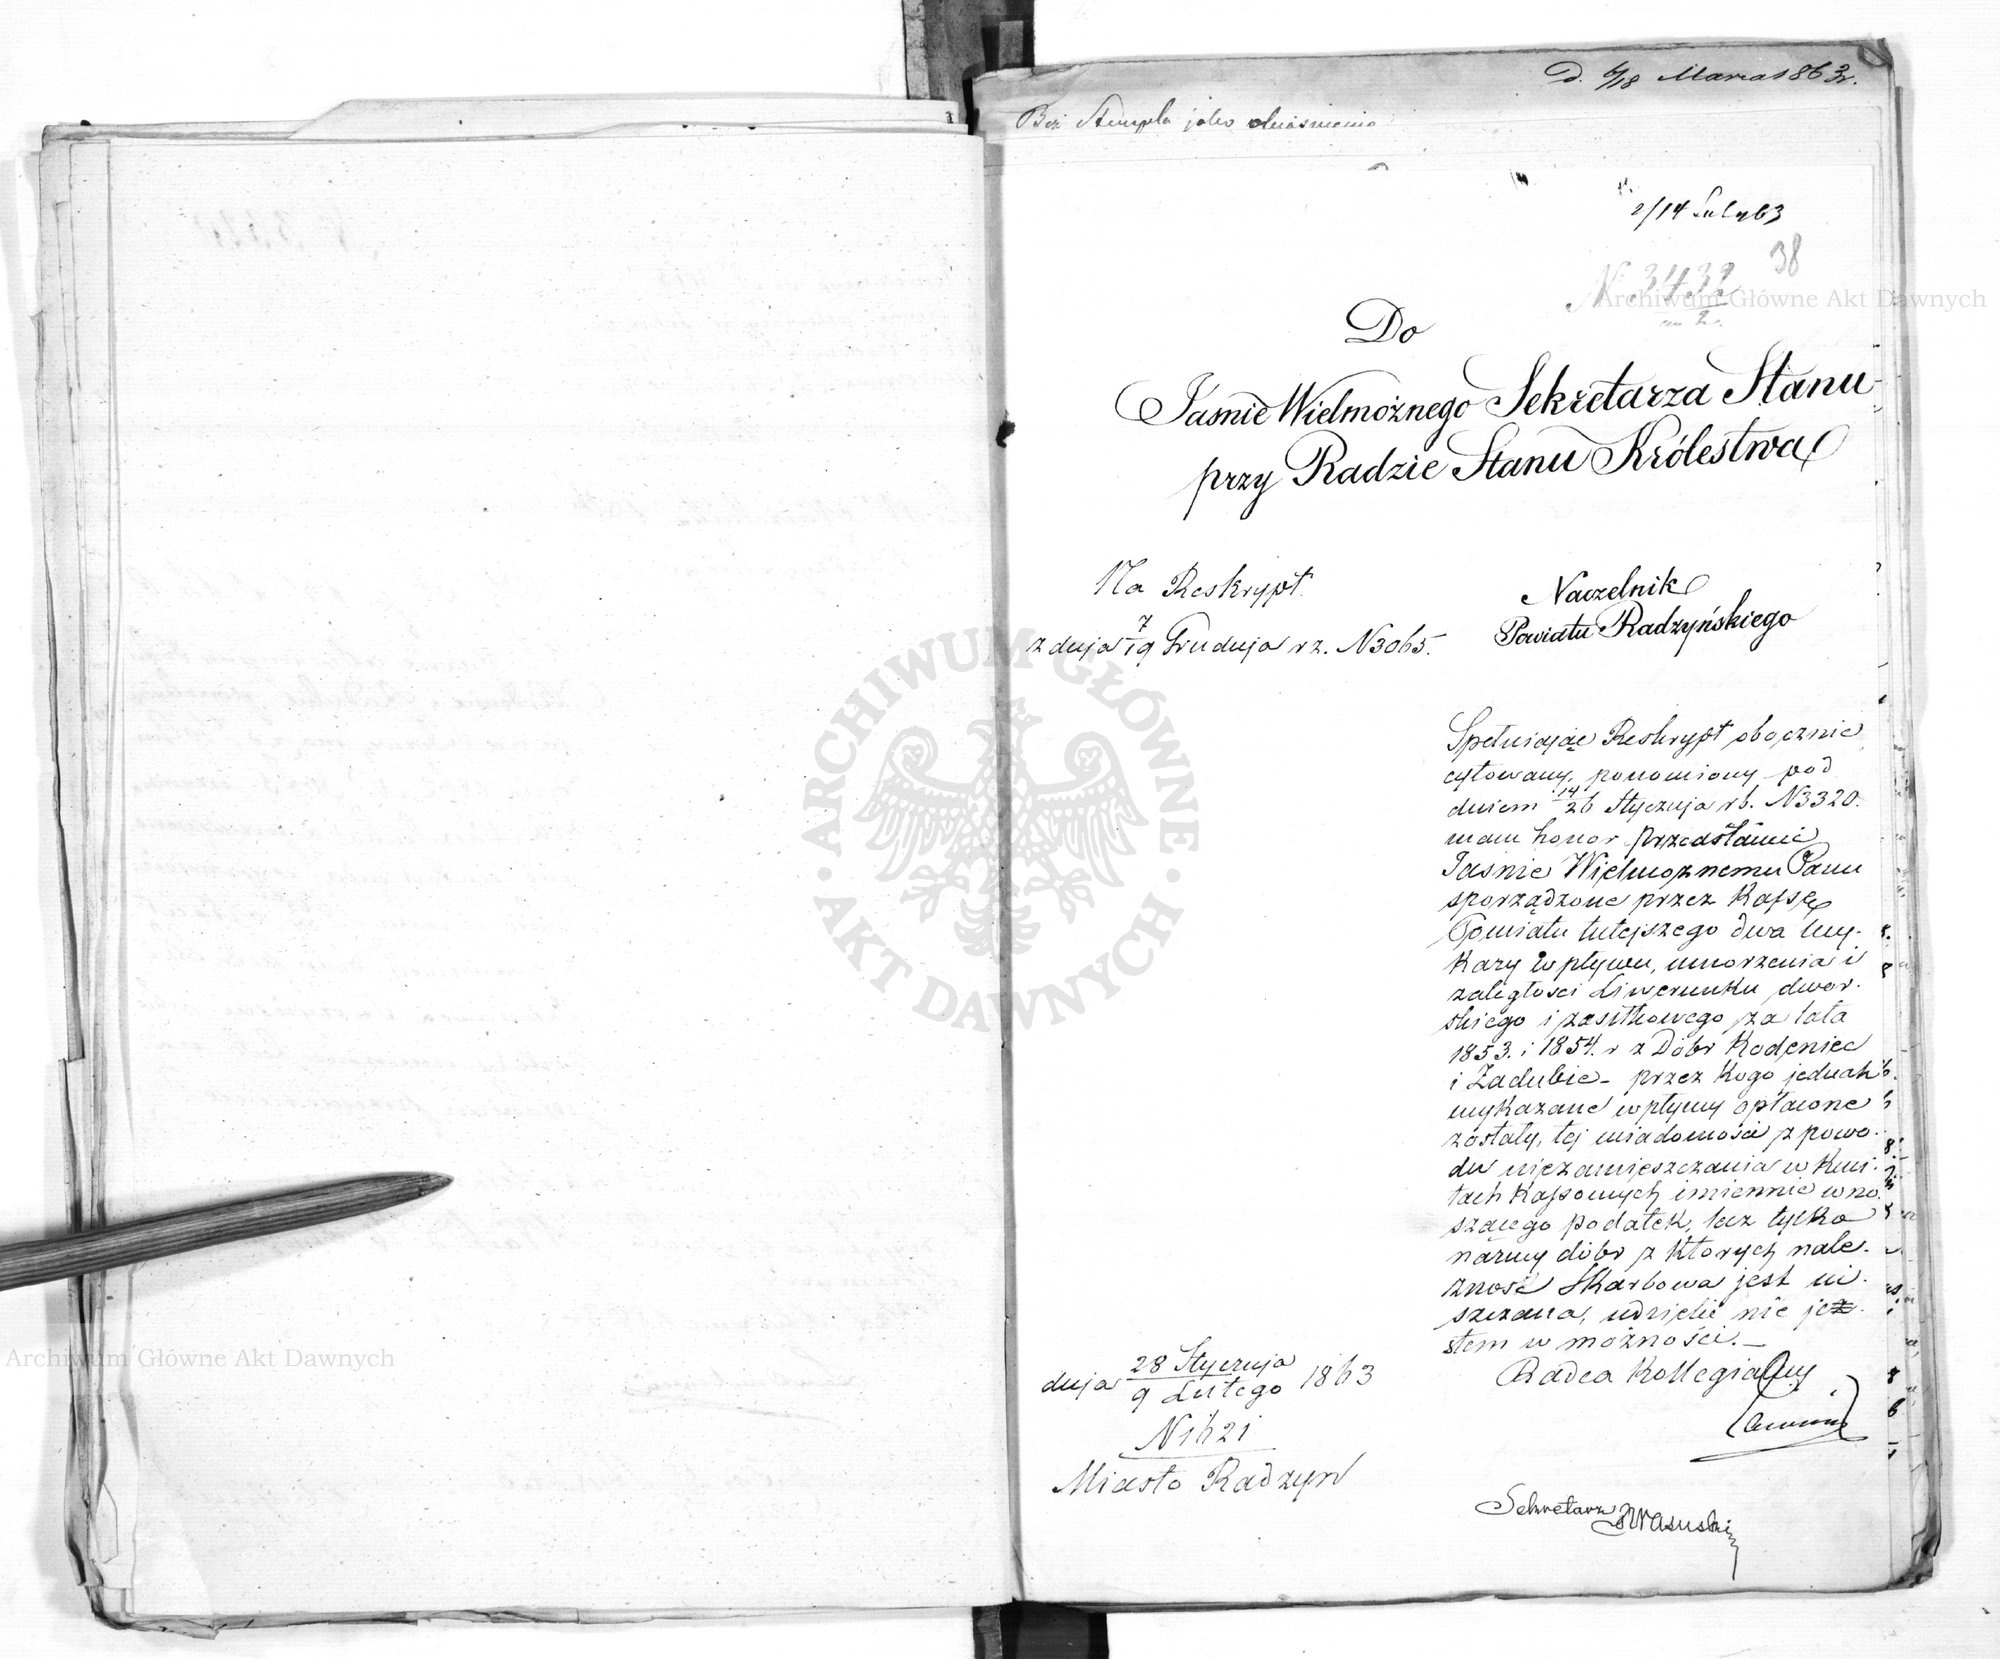 D. 6/18 Marca 1863 r.
Bez Stempla jako objaśnienie
2/14 Lut 1863
38
N 3432
Archiwum Główne Akt Dawnych
Do
Jaśnie Wielmożnego Sekretarza Stanu
przy Radzie Stanu Królestwa
Na Reskrypt
z dnja 7/19 Grudnja rz. N 3065.
Naczelnik
Powiatu Radzyńskiego
Spełniając Reskrypt obocznie
cytowany, ponowiony pod
dniem 14/26 Stycznja rb. N 3320.
mam honor przedstawić
Jaśnie Wielmożnemu Panu
sporządzone przez Kassę
Powiatu tutejszego dwa wy-
kazy wpływu, umorzenia i
zaległości Liwerunku dwor-
skiego i zasiłkowego za lata
1853. i 1854. r z Dóbr Kodeniec
i Zadubie – przez kogo jednak
wykazane wpływy opłacone
zostały, tej wiadomości z powo-
du niezamieszczania w kwi-
tach kassowych imiennie wno-
szącego podatek, lecz tylko
nazwy dóbr z których nale-
żność Skarbowa jest ui-
szczana, udzielić nie je-
stem w możności. –
Radca Kollegialny
dnja 28 Stycznja / 9 Lutego 1863
N 1621
Miasto Radzyn
Sekretarz Krasuski
ARCHIWUM GŁÓWNE
AKT DAWNYCH
Archiwum Główne Akt Dawnych